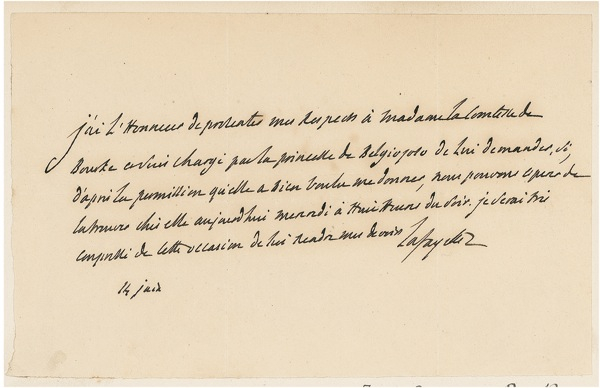 j'ai l'honneur de présenter mes respects à madame la comtesse de
Bourke et suis chargé par la princesse de Belgiojoso de lui demander, si,
d'après la permission qu'elle a bien voulu me donner, nous pouvons espérer de
la trouver chés elle aujourdhui mercredi à huit heures du soir. je serai très
empressé de cette occasion de lui rendre mes devoirs Lafayette
14 juin